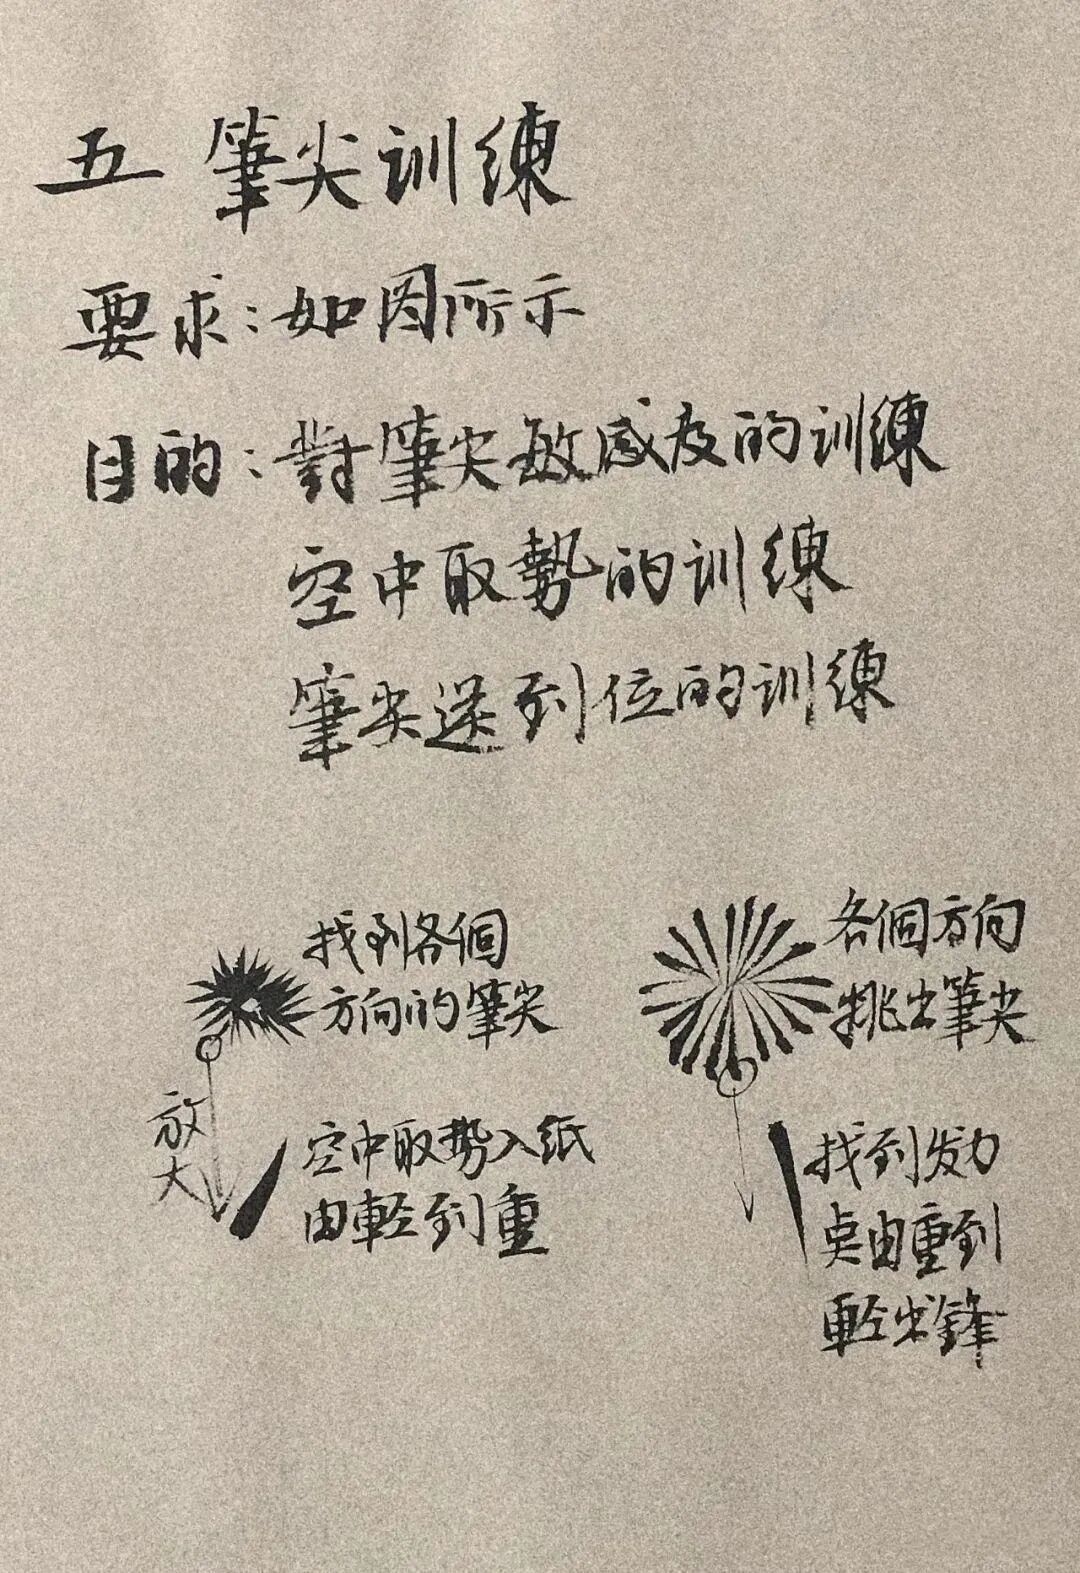 五 筆尖训練
要求:如图所示
目的:對筆尖敏感度的训練
空中取勢的训練
筆尖送到位的训練
找到各個
方向的筆尖
放大
空中取势入纸
由輕到重
各個方向
挑出筆尖
找到发力
点由重到
輕出鋒